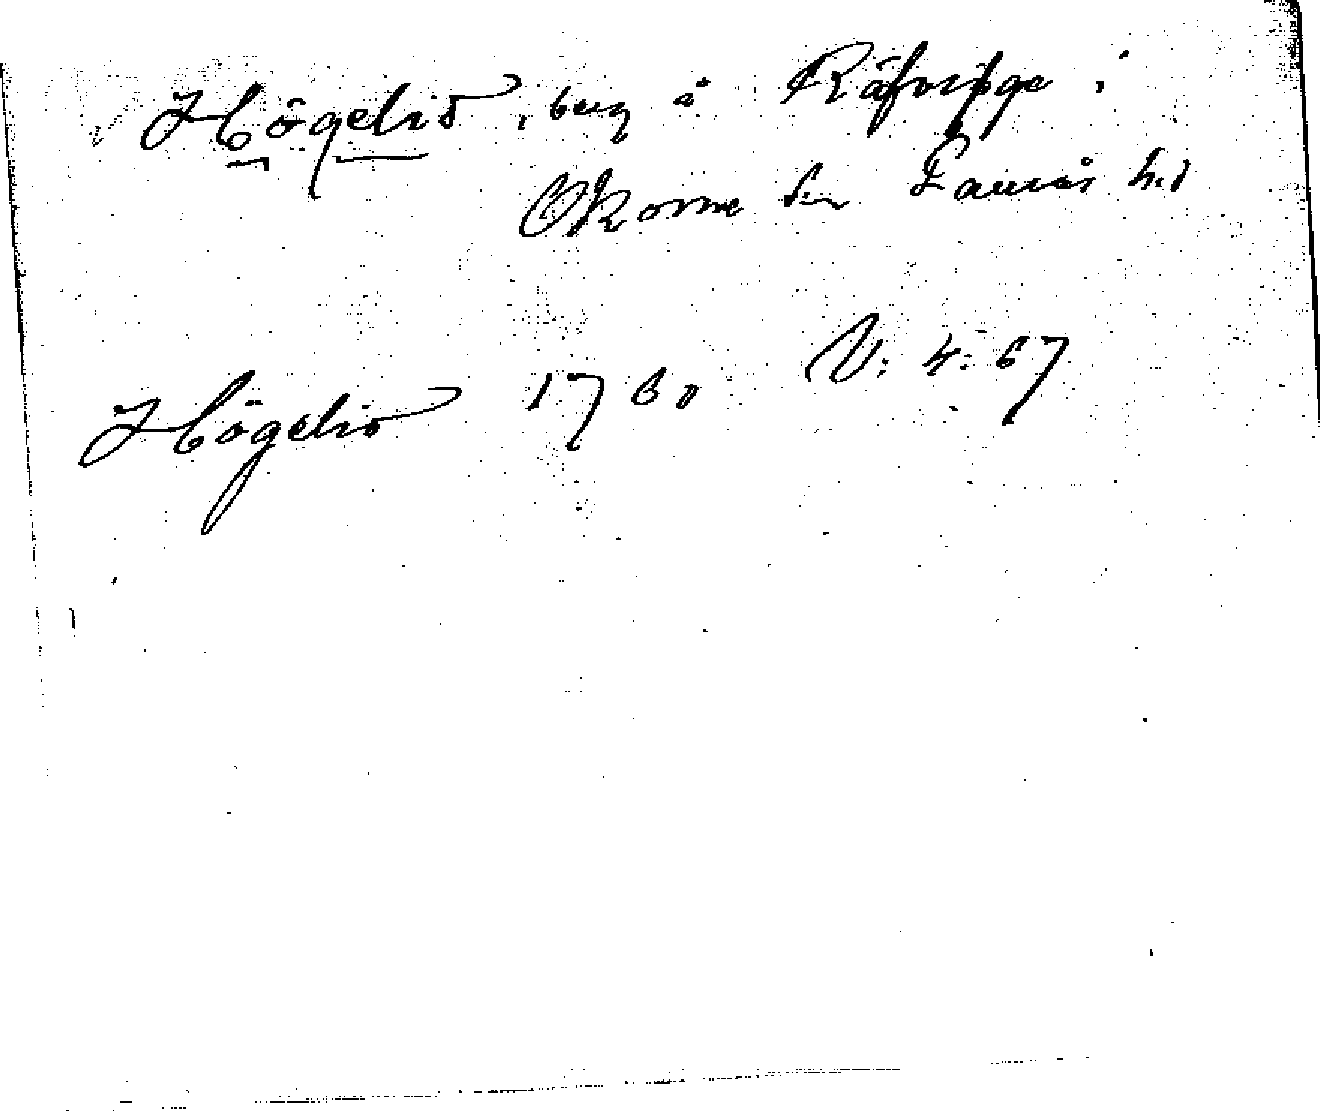 Högelid, berg å Räfvige i
Okome sn Faurås hd
Högelid 1760 V: 4: 67